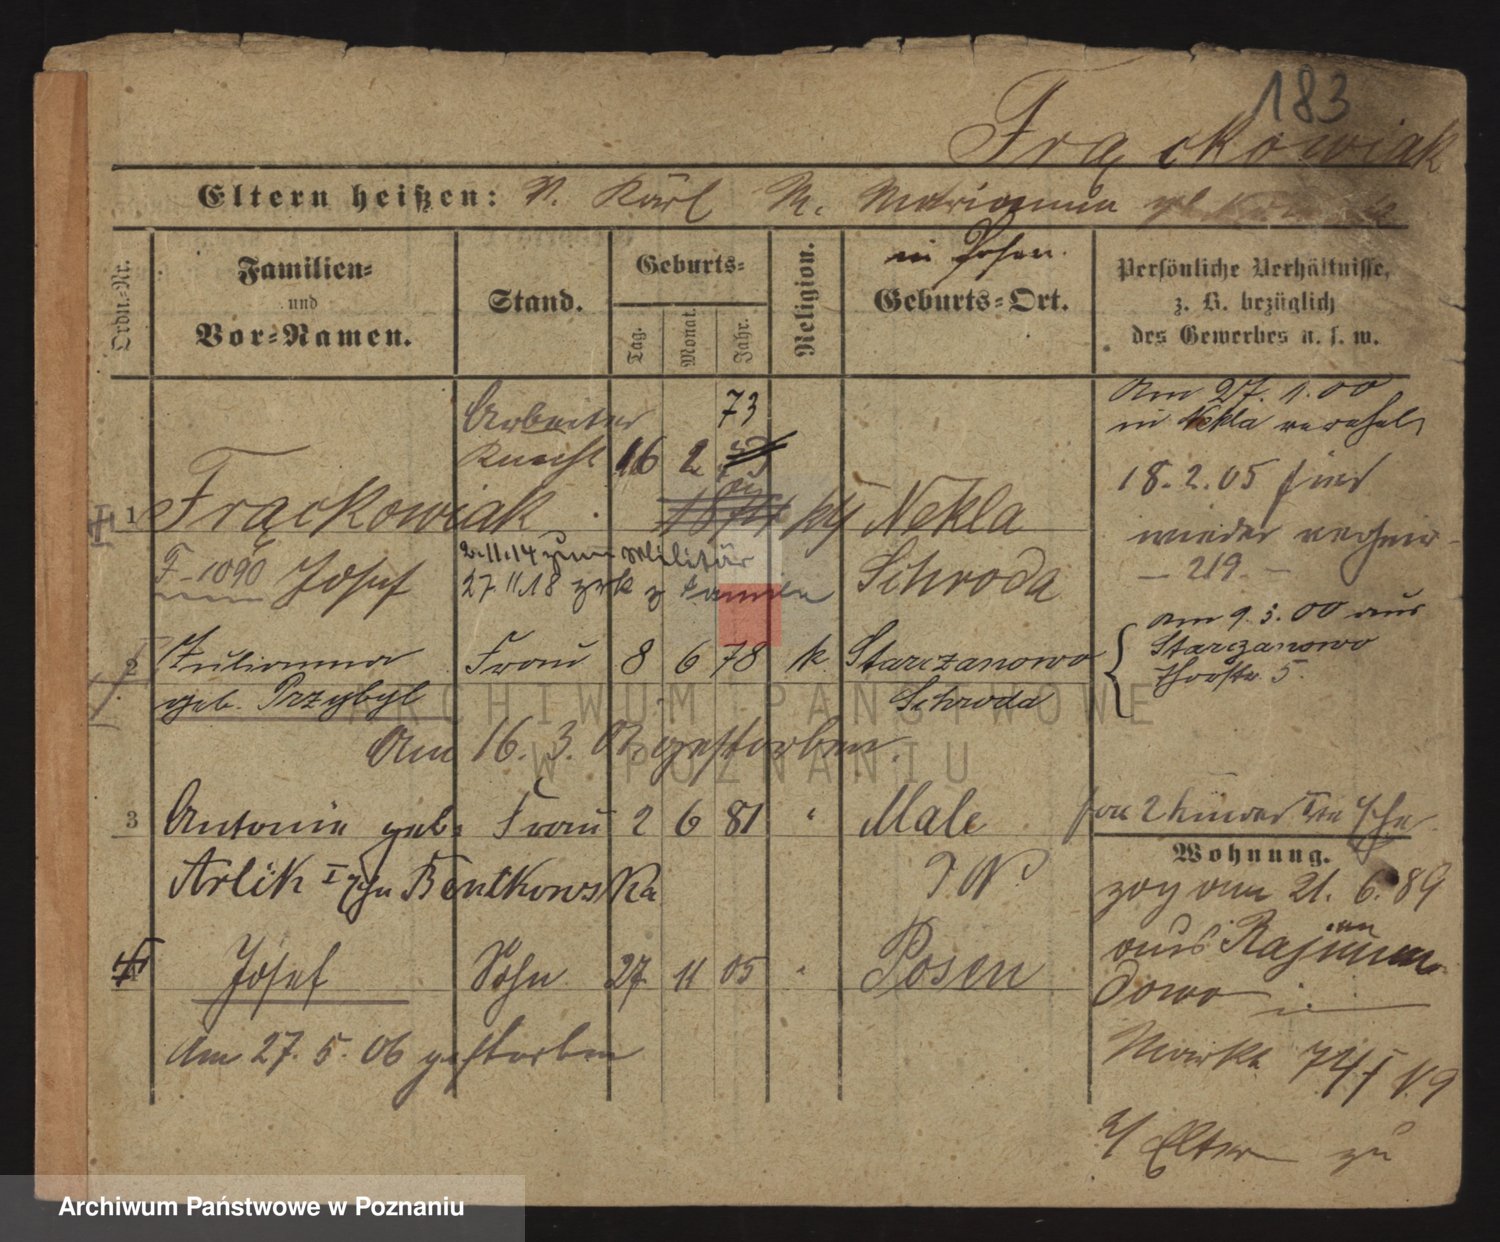 183
Frąckowiak
Eltern heißen: V. Karl M. Marianna
in Posen.
Ordn.-Nr.
Familien- und Vor-Namen.
Stand.
Geburts-
Tag. Monat. Jahr.
Religion.
Geburts-Ort.
Persönliche Verhältnisse, z. B. bezüglich des Gewerbes u. s. w.
Arbeiter 73
Knecht 16 2
1 Frąckowiak Nekla
F-1090 Josef Schroda
2.11.14 zum Militär
27.11.18 zrk z Familie
Am 27. 1. 00
in Nekla verehel.
18.2.05 hier
wieder verheir-
- 219. -
2 Julianna Frau 8 6 78 k Starczanowo
geb. Przybyl Schroda
Am 9. 5. 00 aus
Starczanowo
5.
Am 16. 3. 02 gestorben.
3 Antonie geb. Frau 2 6 81 " Male
Arlik I Ehe Bentkowska
2 Kinder Ite Ehe
Wohnung.
zog am 21. 6. 89
aus
dowo in
Markt 74 I
Josef Sohn 27 11 05 " Posen
Am 27. 5. 06 gestorben
z/ Eltern zu
ARCHIWUM PAŃSTWOWE
W POZNANIU
Archiwum Państwowe w Poznaniu